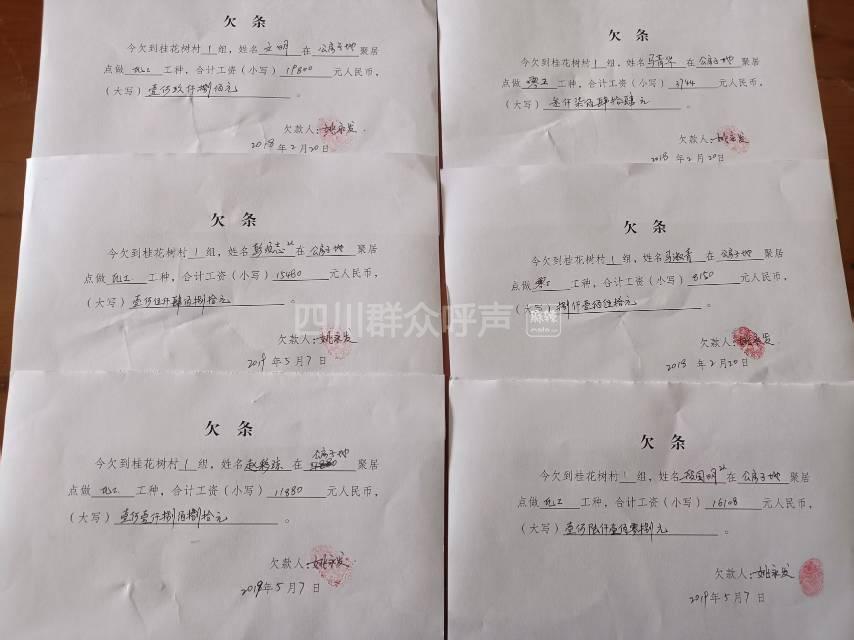 欠条
今欠到桂花树村 1 组，姓名 文明 在 公房子地 聚居
点做 瓦工 工种，合计工资（小写）19800 元人民币，
（大写）壹万玖仟捌佰元 。
欠款人：姚永发
2018 年 2 月 20 日
欠条
今欠到桂花树村 1 组，姓名 马青华 在 公房子地 聚居
点做 零工 工种，合计工资（小写）3744 元人民币，
（大写）叁仟柒佰肆拾肆元
欠款人：姚永发
2018 年 2 月 20 日
欠条
今欠到桂花树村 1 组，姓名 彭 志 在 公房子地 聚居
点做 瓦工 工种，合计工资（小写）15480 元人民币，
（大写）壹万伍仟肆佰捌拾元 。
欠款人：姚永发
2019 年 5 月 7 日
欠条
今欠到桂花树村 1 组，姓名 马淑青 在 公房子地 聚居
点做 零工 工种，合计工资（小写）8150 元人民币，
（大写）捌仟壹佰伍拾元 。
欠款人：姚永发
2018 年 2 月 20 日
欠条
公房子地
今欠到桂花树村 1 组，姓名 赵 琼 在 聚居
点做 瓦工 工种，合计工资（小写）11880 元人民币，
（大写）壹万壹仟捌佰捌拾元 。
欠款人：姚永发
2019年5月7日
欠条
今欠到桂花树村 1 组，姓名 国明 在 公房子地 聚居
点做 瓦工 工种，合计工资（小写）16108 元人民币，
（大写）壹万陆仟壹佰零捌元 。
欠款人：姚永发
2019 年 5 月 7 日
四川群众呼声
麻辣
mala.cn